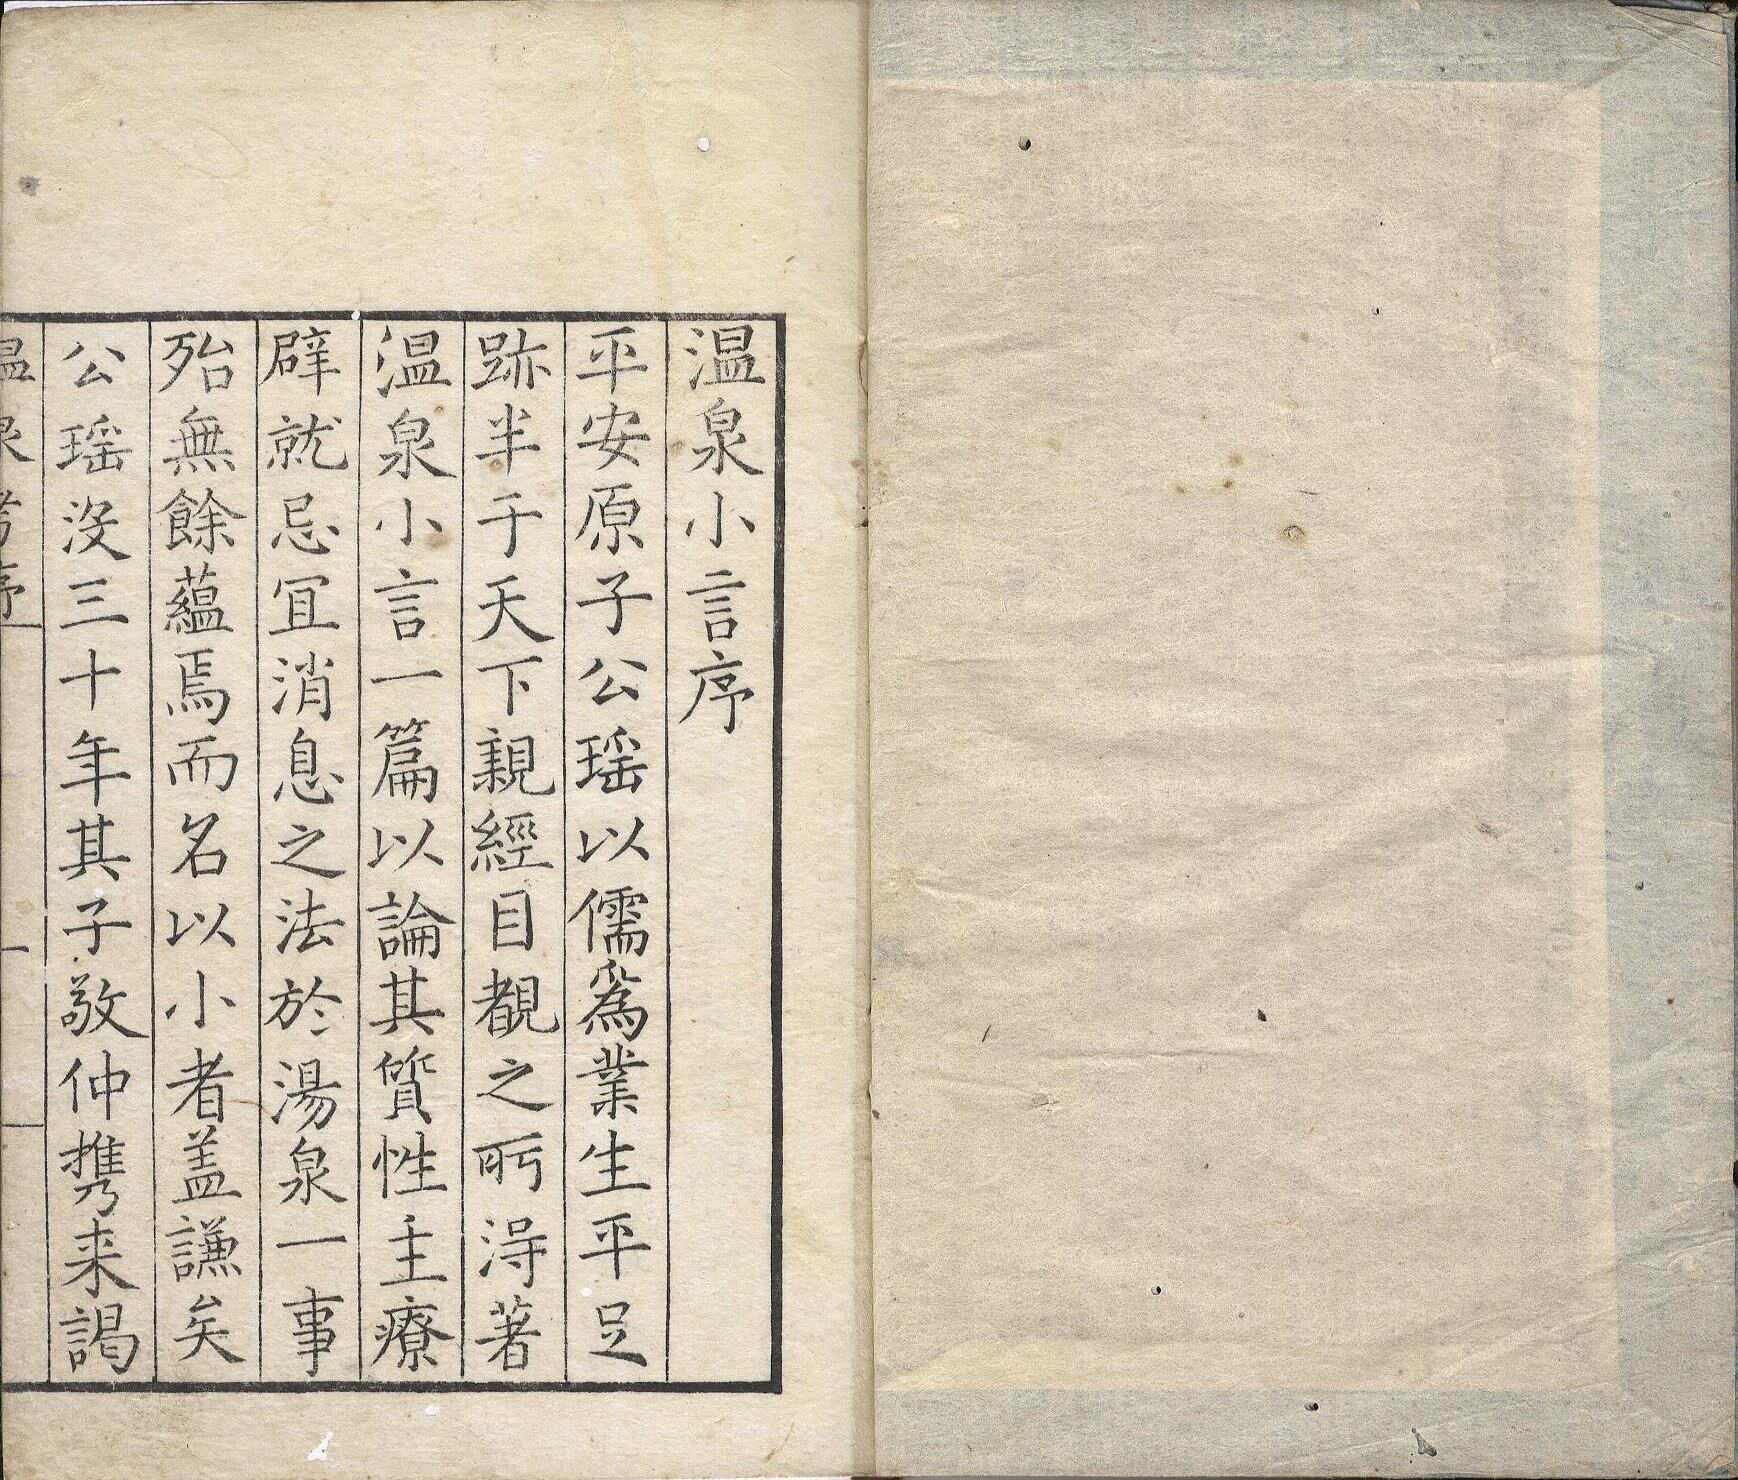 温泉小言序
平安原子公瑶以儒爲業生平足
跡半于天下親經目覩之所得著
温泉小言一篇以論其質性主療
辟就忌宜消息之法於湯泉一事
殆無餘蘊焉而名以小者盖謙矣
公瑶没三十年其子敬仲携来謁
温泉考序
一